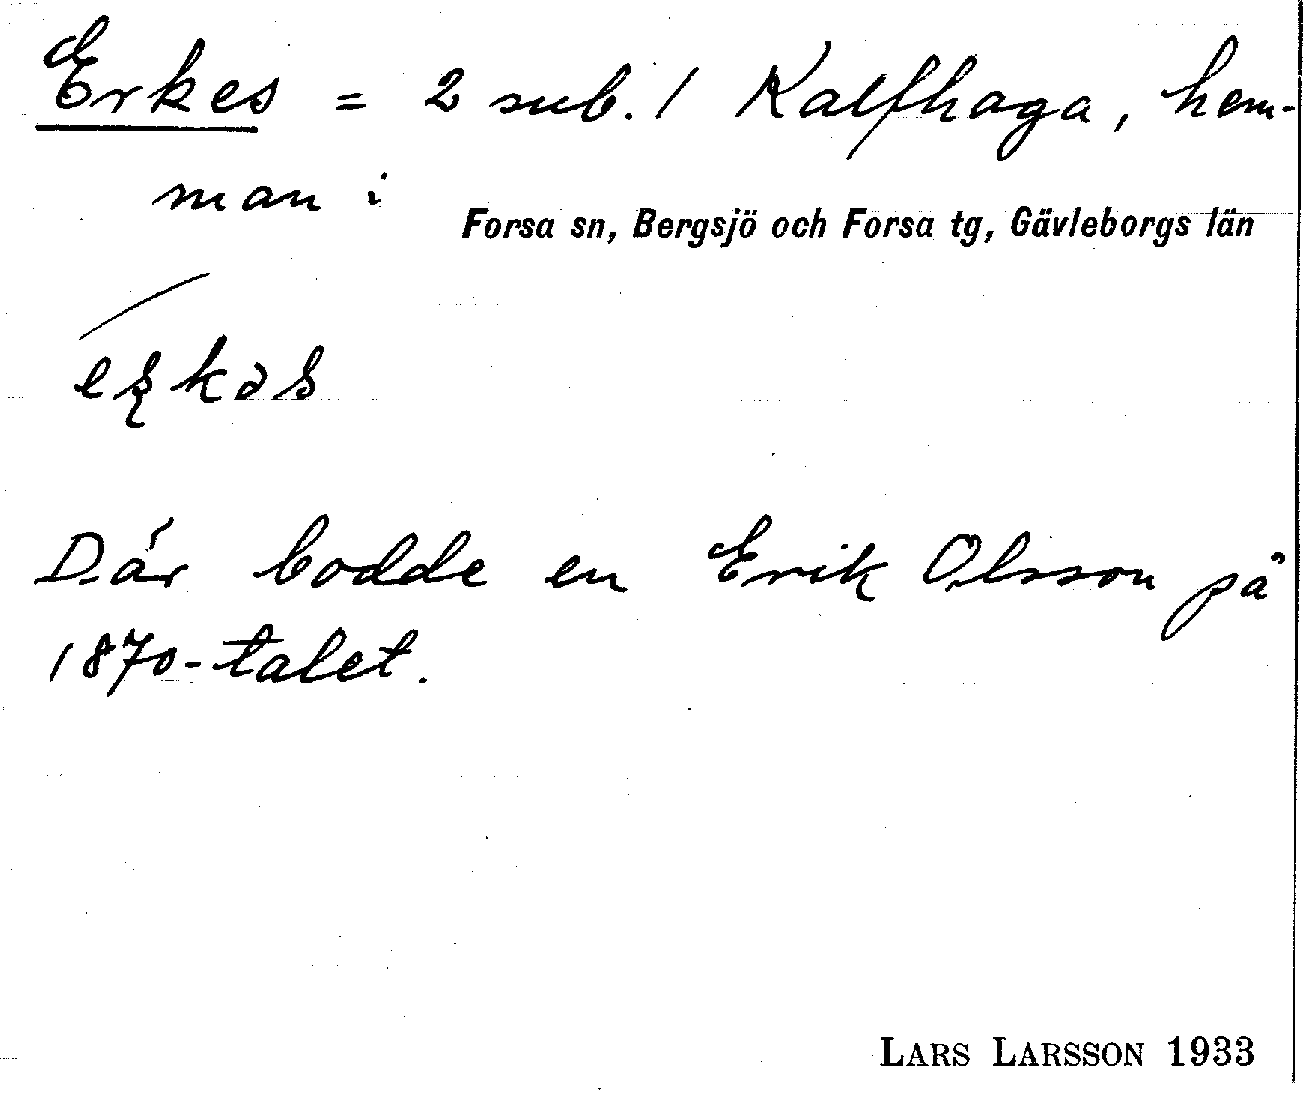 Erkes = 2 sub. 1 Kalfhaga, hem-
man i
Forsa sn, Bergsjö och Forsa tg, Gävleborgs län
Där bodde en Erik Olsson på
1870-talet.
LARS LARSSON 1933